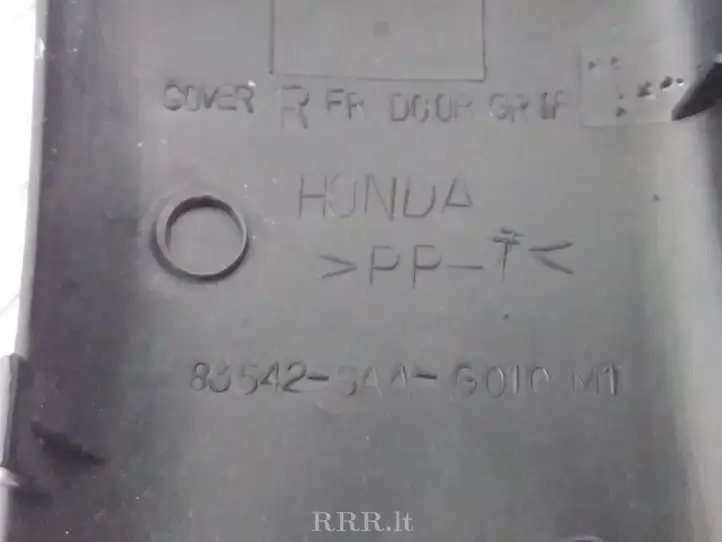 COVER R FR DOOR GRIP
HONDA
>PP-T<
83542-SAA-G010 M1
RRR.lt